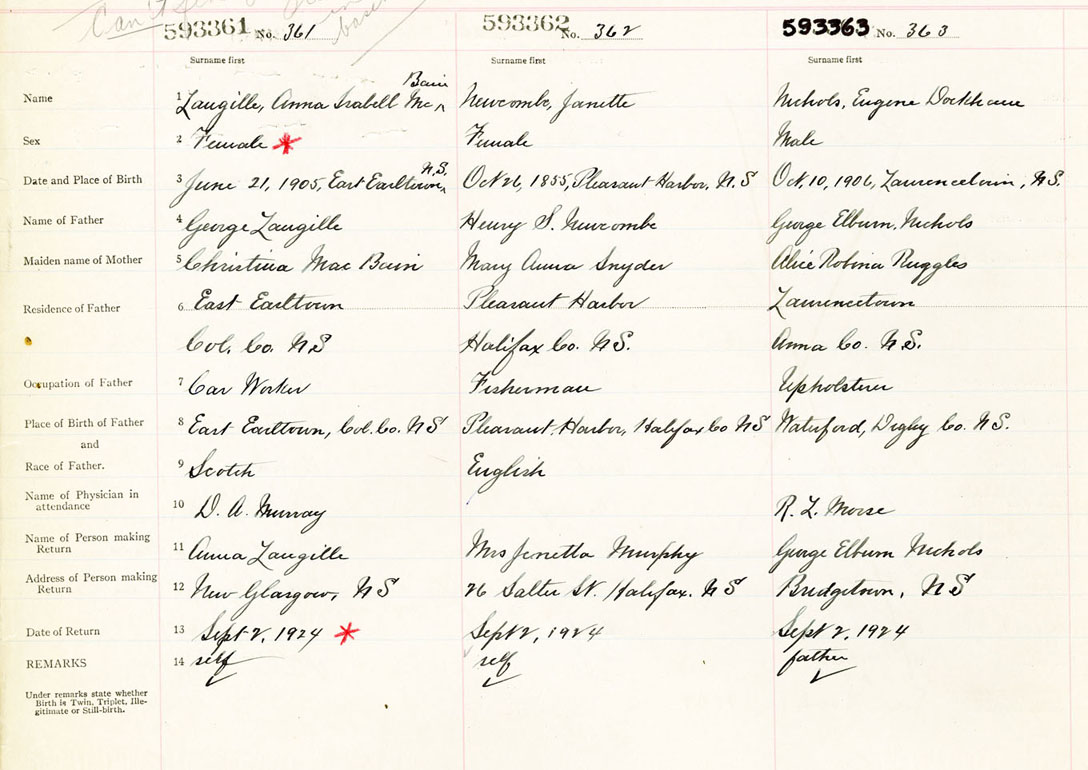 Can't
593361 No. 361 593362 No. 362 593363 No. 363
Surname first Surname first Surname first
Bain
Name 1 Langille, Anna Isabell Mc^ Newcombe, Janette Nichols, Eugene
Sex 2 Female * Female Male
N.S.
Date and Place of Birth 3 June 21, 1905, East Earltown,^ Oct 26, 1855, Pleasant Harbor, N.S Oct, 10, 1906, Laurencetown, N.S.
Name of Father 4 George Langille Henry S. Newcombe George Elburn Nichols
Maiden name of Mother 5 Christina Mac Bain Mary Anna Snyder Alice Robina Ruggles
Residence of Father 6 East Earltown Pleasant Harbor Laurencetown
Col. Co. N.S Halifax Co. N.S. Anna Co. N.S.
Occupation of Father 7 Car Worker Fisherman Upholsterer
Place of Birth of Father 8 East Earltown, Col. Co. N S Pleasant Harbor, Halifax Co N S Waterford, Digby Co. N.S.
and
Race of Father. 9 Scotch English
Name of Physician in
attendance 10 D. A. Murray R. L. Morse
Name of Person making
Return 11 Anna Langille Mrs Jenetta Murphy George Elburn Nichols
Address of Person making
Return 12 New Glasgow, N S 26 Salter St. Halifax. N S Bridgetown, N S
Date of Return 13 Sept 2, 1924 * Sept 2, 1924 Sept 2, 1924
REMARKS 14 self self father
Under remarks state whether
Birth is Twin, Triplet, Ille-
gitimate or Still-birth.